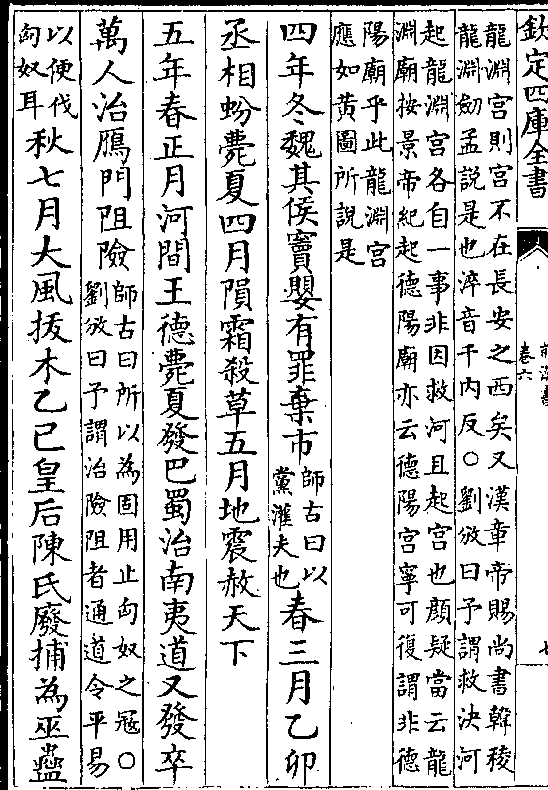 欽定四庫全書
卷六
七
龍淵宮則宮不在長安之西矣又漢章帝賜尚書韓稜
龍淵劒孟説是也淬音千内反○劉攽曰予謂救決河
起龍淵宮各自一事非因救河且起宮也顔疑當云龍
淵廟按景帝紀起德陽廟亦云德陽宮寧可復謂非德
陽廟乎此龍淵宮
應如黄圖所說是
四年冬魏其侯竇嬰有罪棄市師古曰以
黨灌夫也春三月乙卯
丞相蚡薨夏四月隕霜殺草五月地震赦天下
五年春正月河間王德薨夏發巴蜀治南夷道又發卒
萬人治鴈門阻險師古曰所以為固用止匈奴之冦○
劉攽曰予謂治險阻者通道令平易
以便伐
匈奴耳秋七月大風拔木乙巳皇后陳氏廢捕為巫蠱